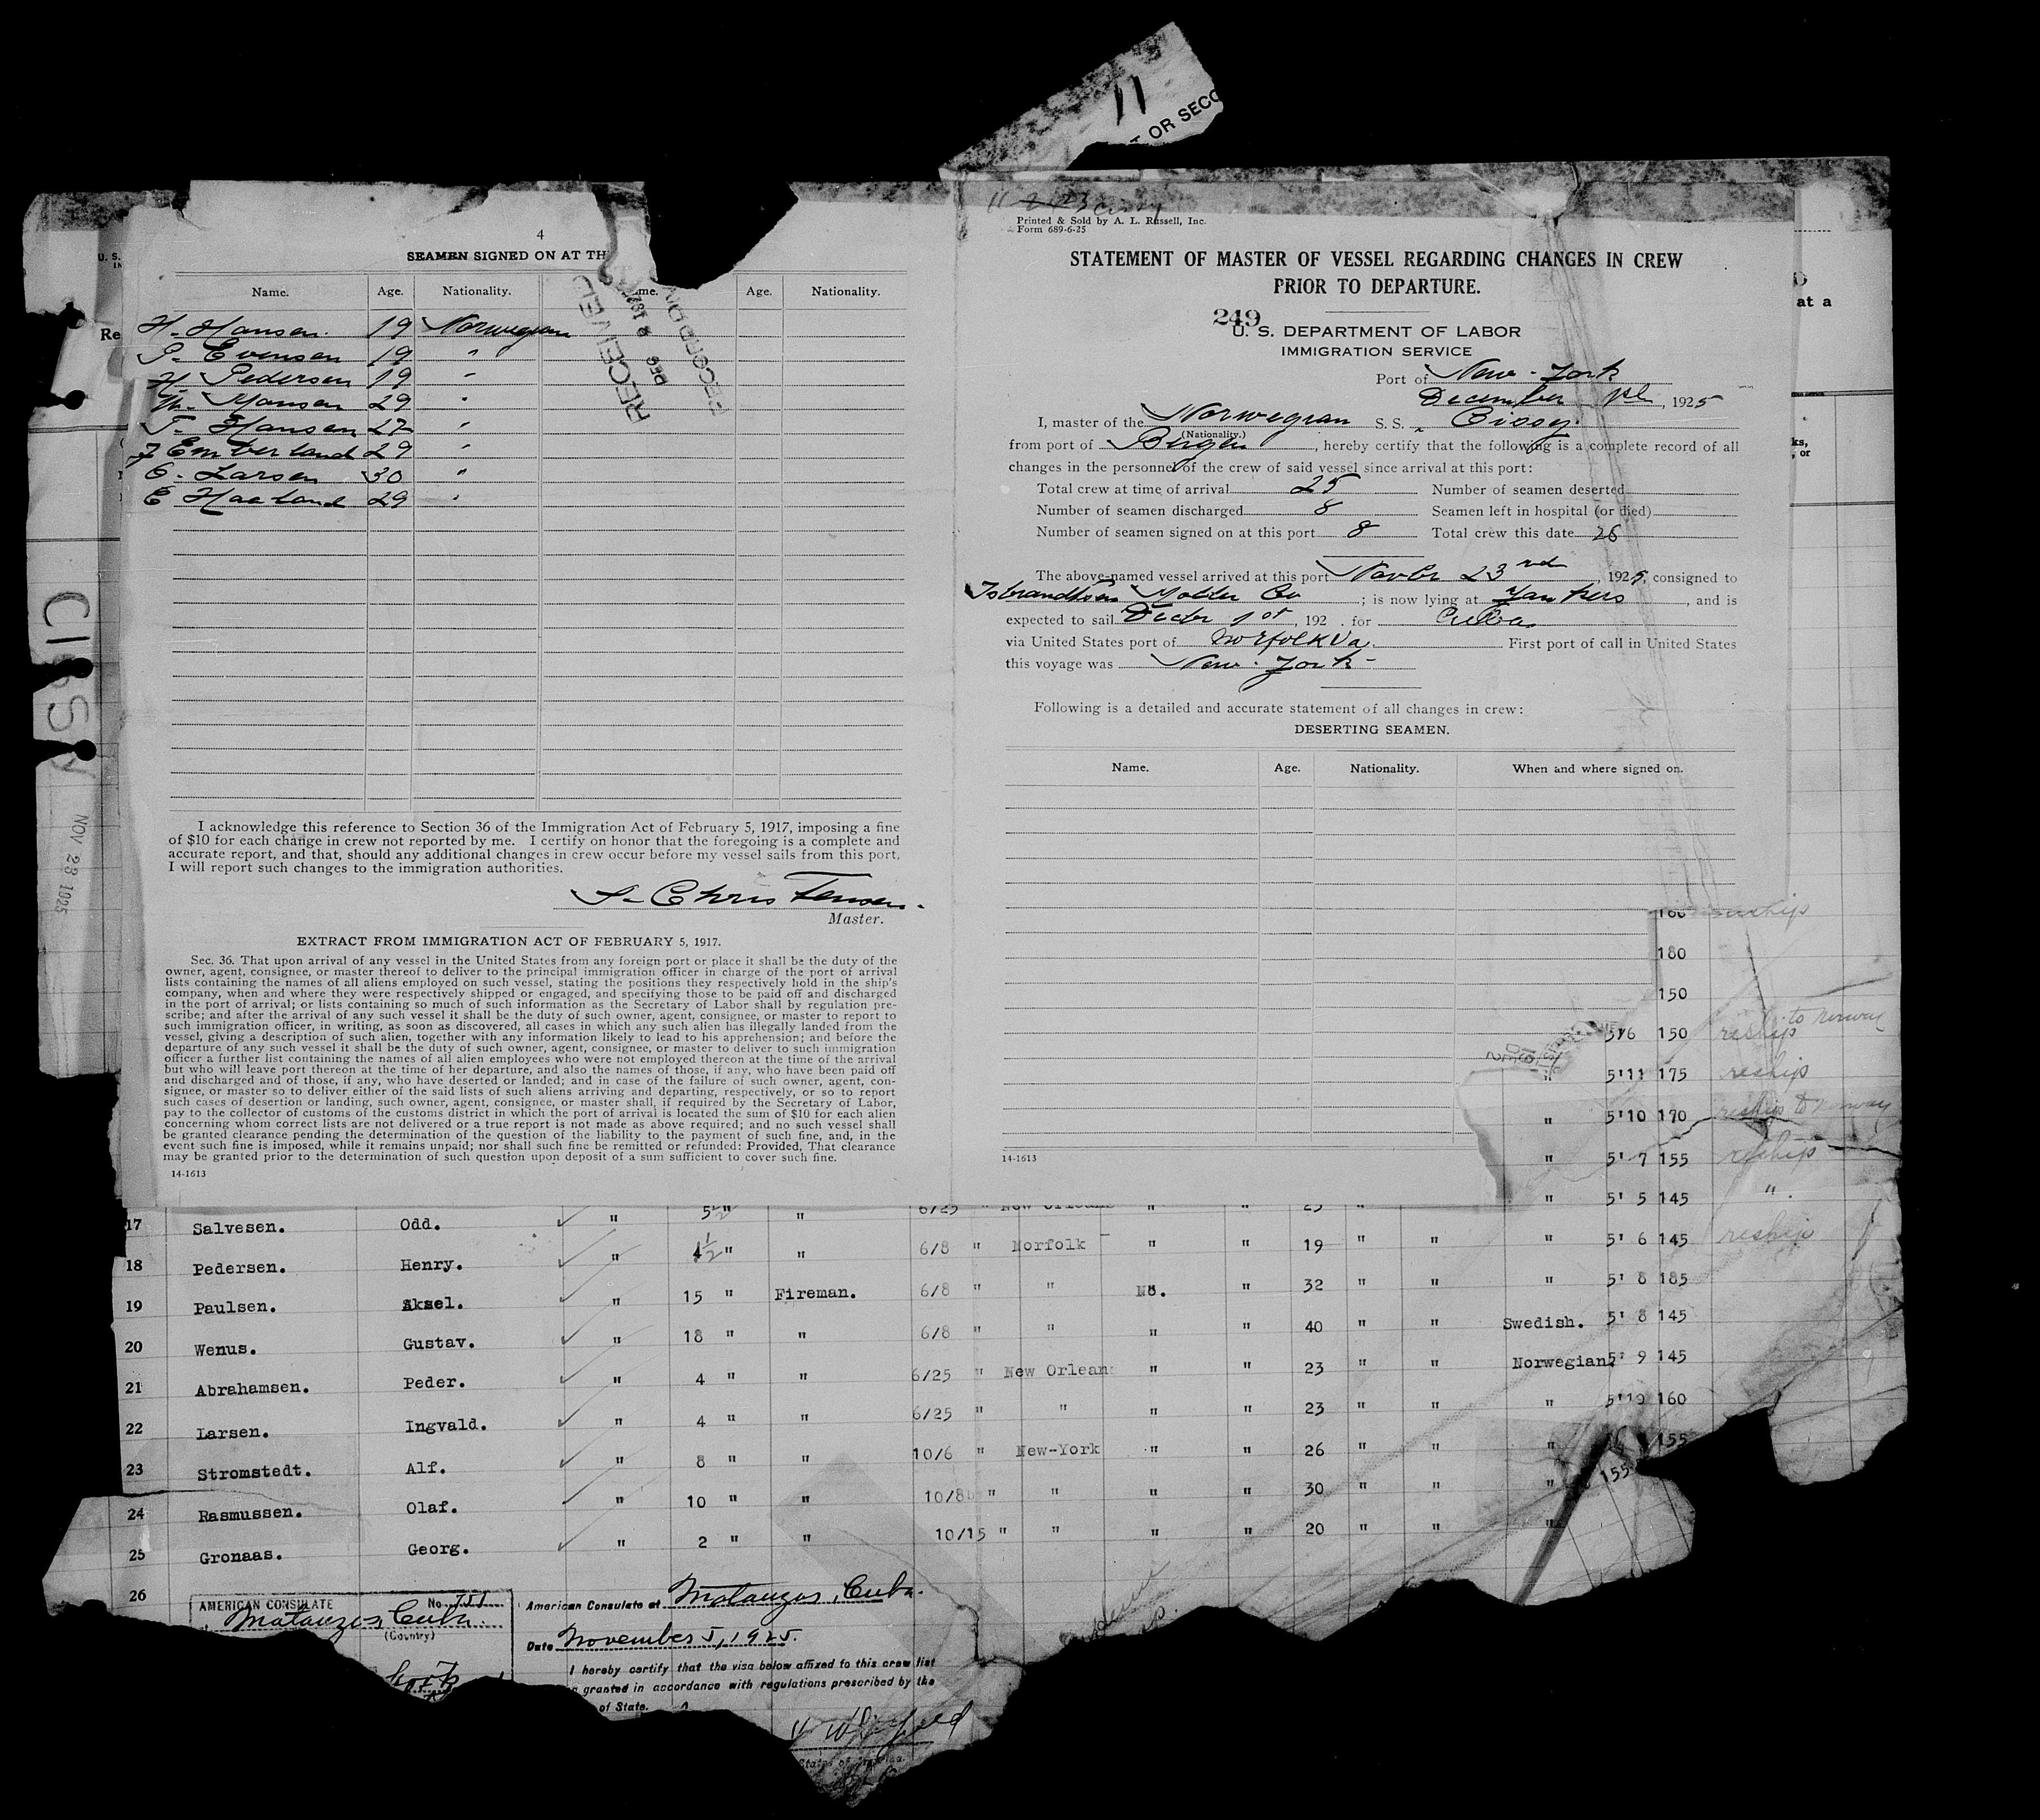 11
T OR SECO
4
SEAMEN SIGNED ON AT TH
Name. Age. Nationality. me. Age. Nationality.
H. Hansen. 19 Norwegian
Evensen 19 "
H. Pedersen 19 "
Hansen 29 "
T. Hansen 22 "
Emberland 29 "
Larsen 30 "
E Haaland 29 "
RECEIVED
DEC
RECORD
I acknowledge this reference to Section 36 of the Immigration Act of February 5, 1917, imposing a fine
of $10 for each change in crew not reported by me. I certify on honor that the foregoing is a complete and
accurate report, and that, should any additional changes in crew occur before my vessel sails from this port,
I will report such changes to the immigration authorities.
Christensen.
Master.
EXTRACT FROM IMMIGRATION ACT OF FEBRUARY 5, 1917.
Sec. 36. That upon arrival of any vessel in the United States from any foreign port or place it shall be the duty of the
owner, agent, consignee, or master thereof to deliver to the principal immigration officer in charge of the port of arrival
lists containing the names of all aliens employed on such vessel, stating the positions they respectively hold in the ship's
company, when and where they were respectively shipped or engaged, and specifying those to be paid off and discharged
in the port of arrival; or lists containing so much of such information as the Secretary of Labor shall by regulation pre-
scribe; and after the arrival of any such vessel it shall be the duty of such owner, agent, consignee, or master to report to
such immigration officer, in writing, as soon as discovered, all cases in which any such alien has illegally landed from the
vessel, giving a description of such alien, together with any information likely to lead to his apprehension; and before the
departure of any such vessel it shall be the duty of such owner, agent, consignee, or master to deliver to such immigration
officer a further list containing the names of all alien employees who were not employed thereon at the time of the arrival
but who will leave port thereon at the time of her departure, and also the names of those, if any, who have been paid off
and discharged and of those, if any, who have deserted or landed; and in case of the failure of such owner, agent, con-
signee, or master so to deliver either of the said lists of such aliens arriving and departing, respectively, or so to report
such cases of desertion or landing, such owner, agent, consignee, or master shall, if required by the Secretary of Labor,
pay to the collector of customs of the customs district in which the port of arrival is located the sum of $10 for each alien
concerning whom correct lists are not delivered or a true report is not made as above required; and no such vessel shall
be granted clearance pending the determination of the question of the liability to the payment of such fine, and, in the
event such fine is imposed, while it remains unpaid; nor shall such fine be remitted or refunded: Provided, That clearance
may be granted prior to the determination of such question upon deposit of a sum sufficient to cover such fine.
14-1613
Printed & Sold by A. L. Russell, Inc.
Form 689-6-25
STATEMENT OF MASTER OF VESSEL REGARDING CHANGES IN CREW
PRIOR TO DEPARTURE.
249
U. S. DEPARTMENT OF LABOR
IMMIGRATION SERVICE
Port of New-York
December 1st, 1925
I, master of the Norwegian S. S. "Cissy."
(Nationality.)
from port of Bergen, hereby certify that the following is a complete record of all
changes in the personnel of the crew of said vessel since arrival at this port:
Total crew at time of arrival 25 Number of seamen deserted
Number of seamen discharged 8 Seamen left in hospital (or died)
Number of seamen signed on at this port 8 Total crew this date 26
The above-named vessel arrived at this port Novbr 23rd, 1925, consigned to
Isbrandtsen Moller Co; is now lying at Yonkers, and is
expected to sail Decbr 1st, 192 . for Cuba
via United States port of Norfolk Va. First port of call in United States
this voyage was New-York-
Following is a detailed and accurate statement of all changes in crew:
DESERTING SEAMEN.
Name. Age. Nationality. When and where signed on.
14-1613
U. S.
IN
Re
CISSY
NOV 23 1925
at a
ks,
, or
180
150
5'6 150 reship to Norway
" 5'11 175 reship
" 5'10 170 reship to Norway
" 5' 7 155 reship
" 5' 5 145 ".
17 Salvesen. Odd. " 5½" " 6/25 " New Orleans " " 25 " " " 5' 6 145 reship
18 Pedersen. Henry. " 4½" " 6/8 " Norfolk " " 19 " " " 5' 8 185
19 Paulsen. Aksel. " 15 " Fireman. 6/8 " " No. " 32 " " Swedish. 5' 8 145
20 Wenus. Gustav. " 18 " " 6/8 " " " " 40 " " Norwegian. 5' 9 145
21 Abrahamsen. Peder. " 4 " " 6/25 " New Orleans " " 23 " " " 5'10 160
22 Larsen. Ingvald. " 4 " " 6/25 " " " " 23 " " " 155
23 Stromstedt. Alf. " 8 " " 10/6 " New-York " " 26 " " " 155
24 Rasmussen. Olaf. " 10 " " 10/8 " " " " 30 " " "
25 Gronaas. Georg. " 2 " " 10/15 " " " " 20 " "
26
AMERICAN CONSULATE No.
Matanzas, Cuba.
(Country)
American Consulate at Matanzas, Cuba.
Date November 5, 1925.
I hereby certify that the visa below affixed to this crew list
granted in accordance with regulations prescribed by the
of State.
States of America.